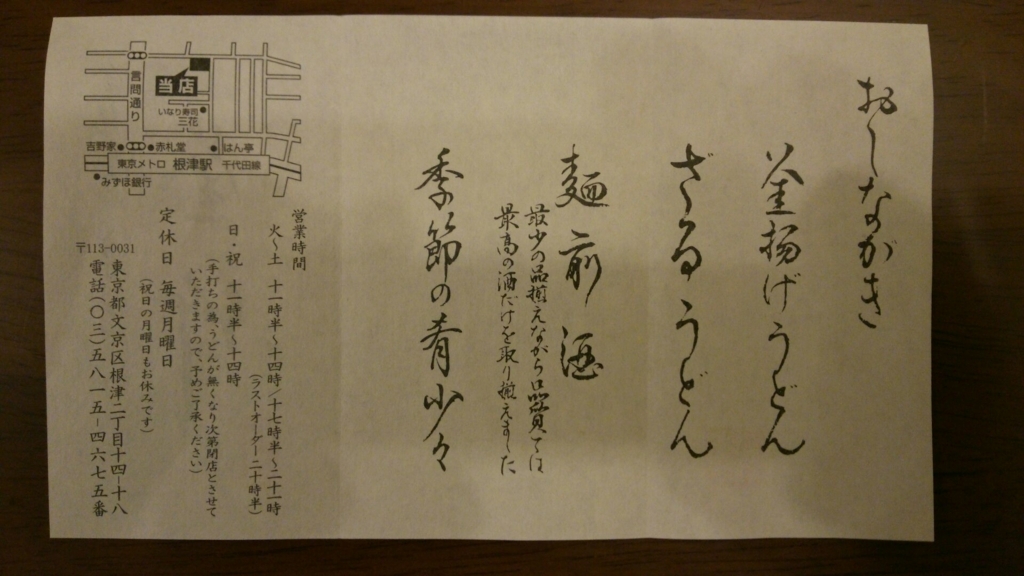 おしながき
釜揚げうどん
ざるうどん
麺前酒
最少の品揃えながら品質では
最高の酒だけを取り揃えました
季節の肴少々
営業時間
火〜土 十一時半〜十四時/十七時半〜二十一時
(ラストオーダー二十時半)
日・祝 十一時半〜十四時
(手打ちの為、うどんが無くなり次第閉店とさせて
いただきますので、予めご了承ください)
定休日 毎週月曜日
(祝日の月曜日もお休みです)
〒113-0031
東京都文京区根津二丁目十四-十八
電話(〇三)五八一五-四六七五番
言問通り
当店
いなり寿司
三花
吉野家
赤札堂
はん亭
東京メトロ 根津駅 千代田線
みずほ銀行